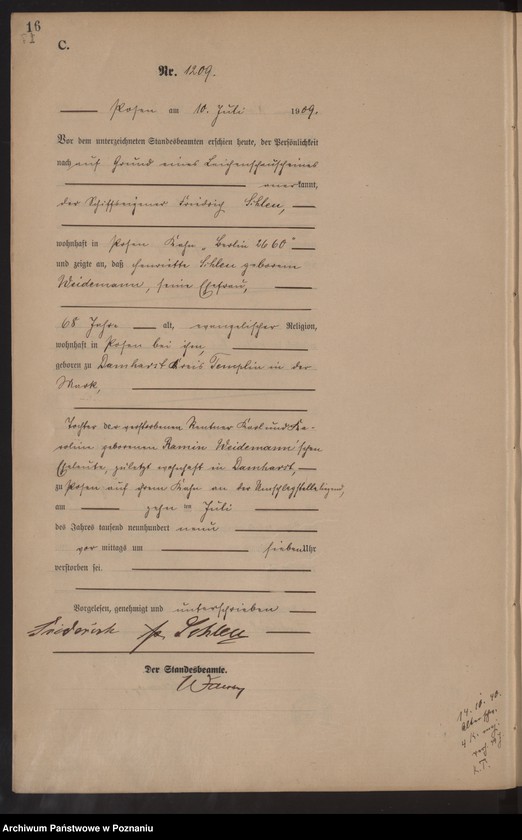 16
C.
Nr. 1209.
Posen am 10. Juli 1909.
Vor dem unterzeichneten Standesbeamten erschien heute, der Persönlichkeit
nach auf Grund eines Leichenschauscheines
anerkannt,
der Schiffseigner Friedrich Sehlen,
wohnhaft in Posen Kahn „Berlin 2660"
und zeigte an, daß Henriette Sehlen geborene
Weidemann, seine Ehefrau,
68 Jahre alt, evangelischer Religion,
wohnhaft in Posen bei ihm,
geboren zu Damhorst Kreis Templin in der
Mark,
Tochter der verstorbenen Rentner Karl und Ka-
roline geborenen Ramin Weidemann'schen
Eheleute, zuletzt wohnhaft in Damhorst,
zu Posen auf ihrem Kahn an der Umschlagstelle liegend,
am zehnten Juli
des Jahres tausend neunhundert neun
vor mittags um sieben Uhr
verstorben sei.
Vorgelesen, genehmigt und unterschrieben
Friederich Sehlen
Der Standesbeamte.
14. 10. 40.
Archiwum Państwowe w Poznaniu